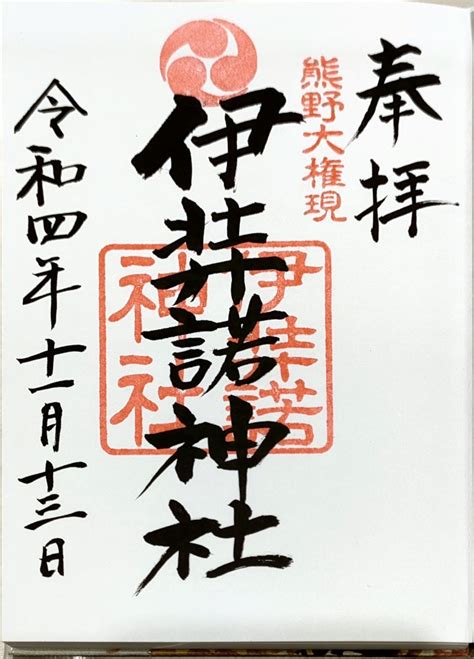 奉拝
熊野大権現
伊弉諾神社
伊弉諾
神社
令和四年十一月十三日